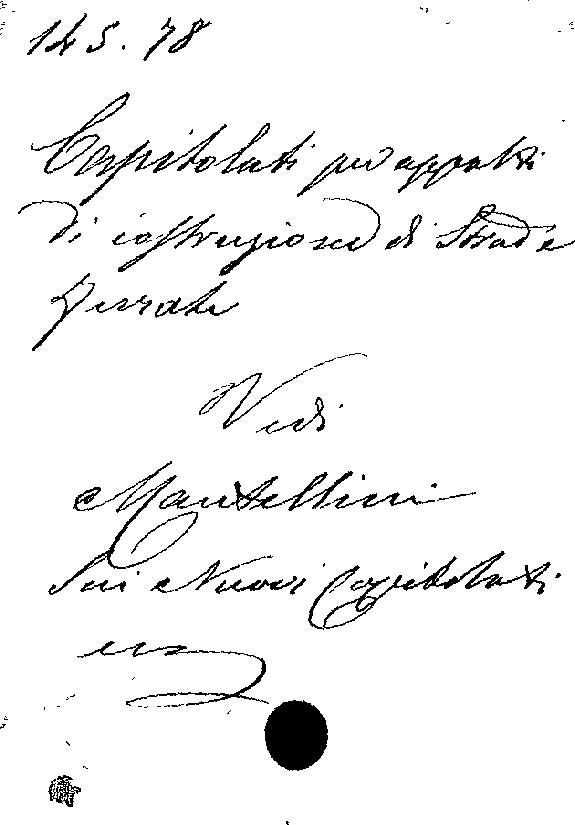 145.78
Capitolati per appalti
di costruzione di Strade
ferrate
Vedi
Mantellini
Sui Nuovi Capitolati
ecc